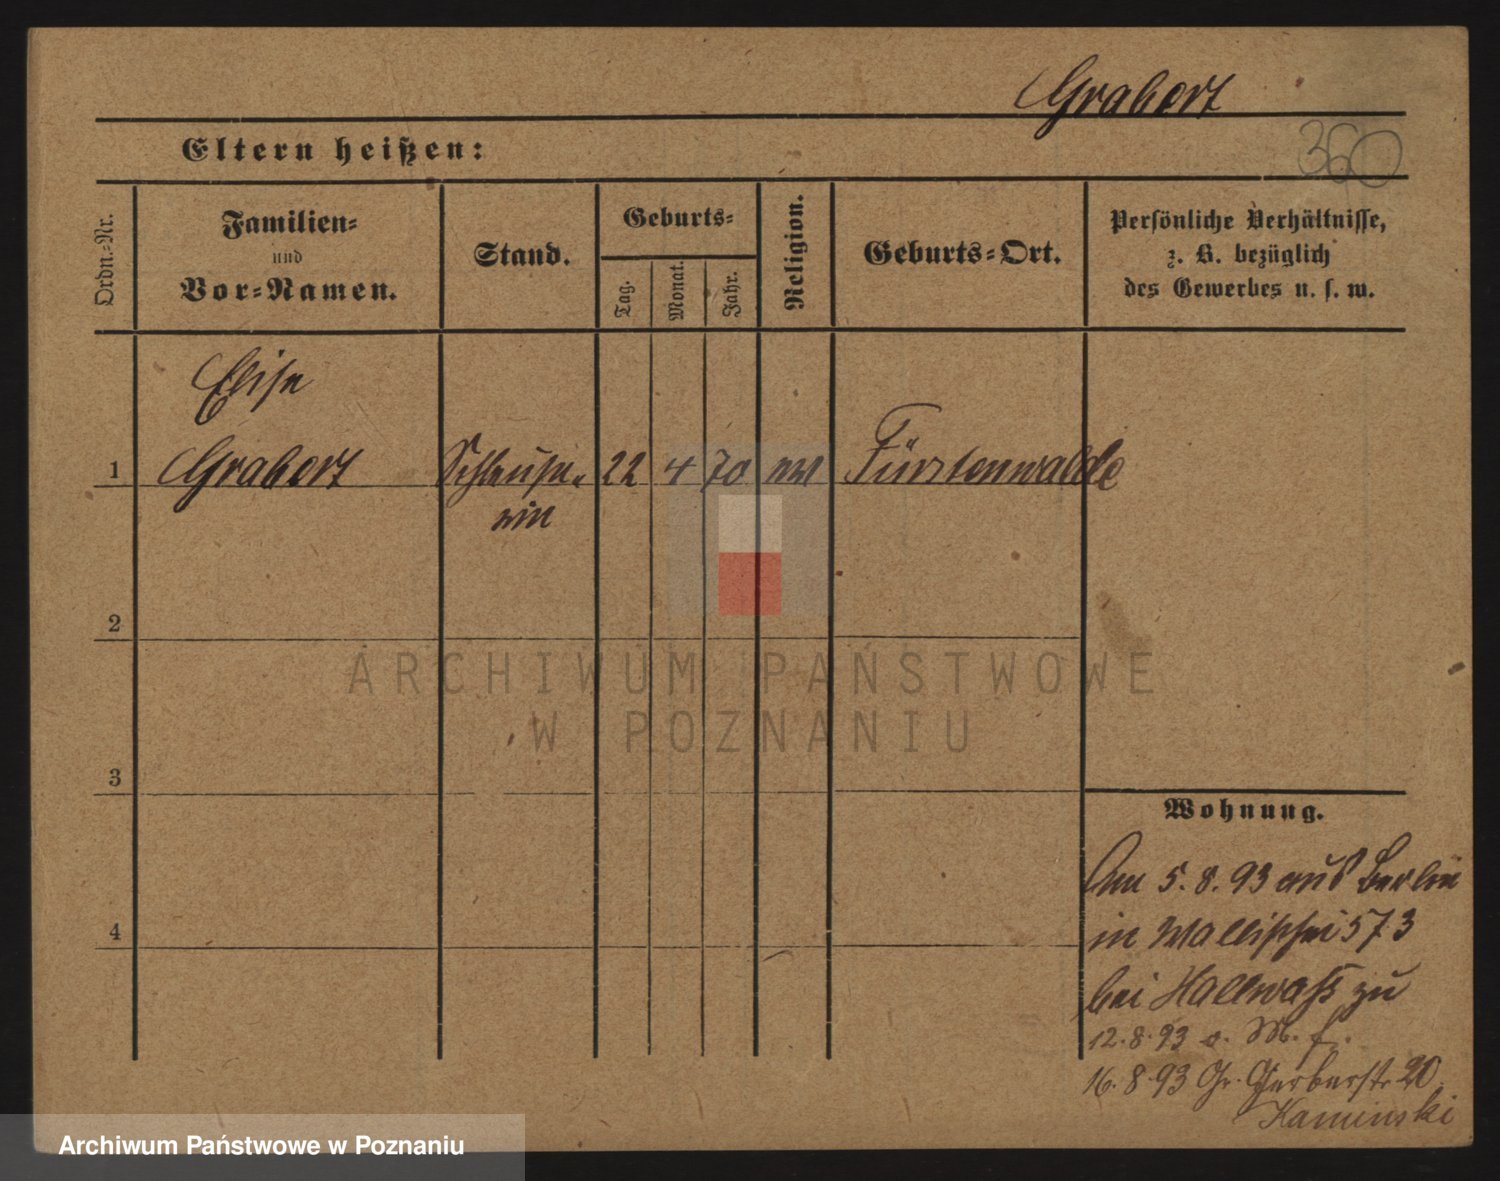 Grabert
360
Eltern heißen:
Ordn.-Nr.
Familien-
und
Vor-Namen.
Stand.
Geburts-
Tag.
Monat.
Jahr.
Religion.
Geburts-Ort.
Persönliche Verhältnisse,
z. B. bezüglich
des Gewerbes u. s. w.
Elise
1 Grabert 22 4 70 ev Fürstenwalde
rin
2
ARCHIWUM PAŃSTWOWE
W POZNANIU
3
Wohnung.
Am 5. 8. 93 aus Berlin
4
in Wallischei 573
bei Hallwass zu
12. 8. 93 o. M. f.
16. 8. 93 Gr. Gerberstr 20
Kaminski
Archiwum Państwowe w Poznaniu